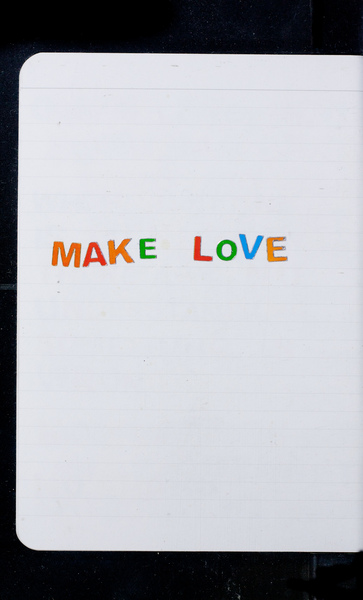 MAKE LOVE